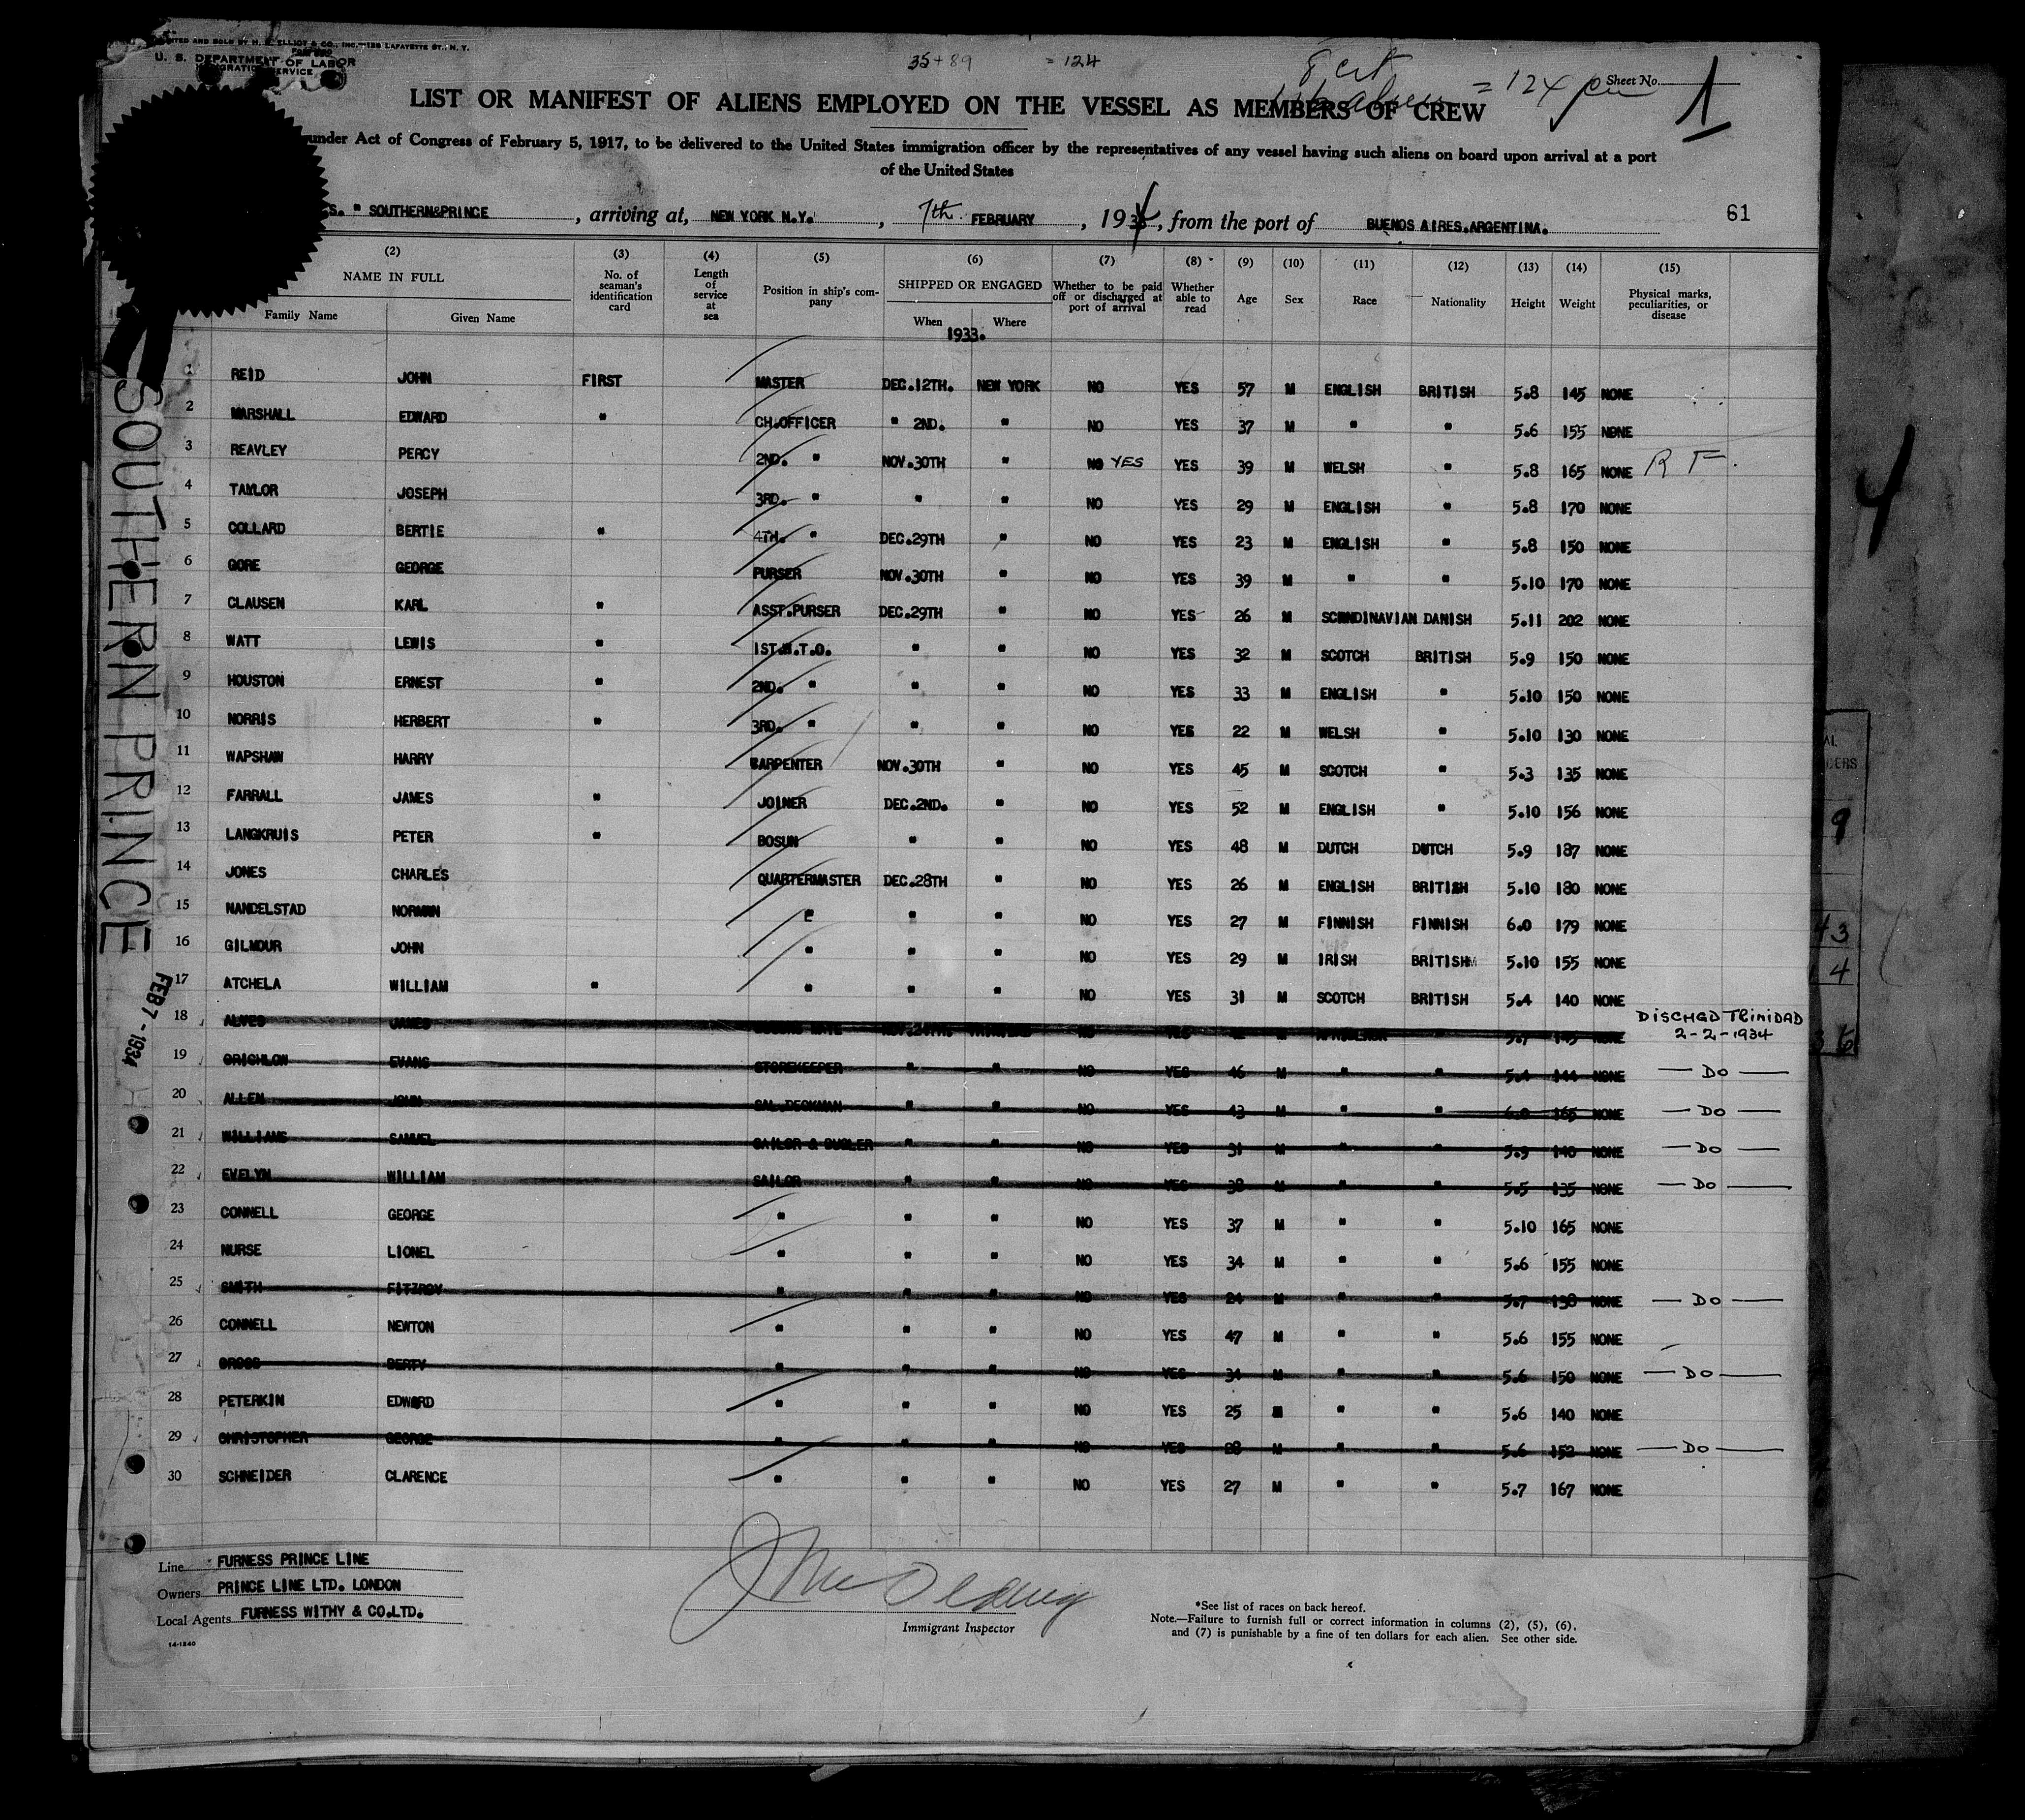 PRINTED AND SOLD BY H. ELLIOT & CO., INC.—128 LAFAYETTE ST., N. Y.
U. S. DEPARTMENT OF LABOR
IMMIGRATION SERVICE
35 + 89 = 124
= 124
Sheet No. 1
LIST OR MANIFEST OF ALIENS EMPLOYED ON THE VESSEL AS MEMBERS OF CREW
under Act of Congress of February 5, 1917, to be delivered to the United States immigration officer by the representatives of any vessel having such aliens on board upon arrival at a port
of the United States
S. " SOUTHERN&PRINCE , arriving at, NEW YORK N.Y. , 7th FEBRUARY , 1934 , from the port of BUENOS AIRES.ARGENTINA. 61
(2) (3) (4) (5) (6) (7) (8) (9) (10) (11) (12) (13) (14) (15)
NAME IN FULL No. of seaman's identification card Length of service at sea Position in ship's company SHIPPED OR ENGAGED Whether to be paid off or discharged at port of arrival Whether able to read Age Sex Race Nationality Height Weight Physical marks, peculiarities, or disease
Family Name Given Name When Where
1933.
1 REID JOHN FIRST MASTER DEC.12TH. NEW YORK NO YES 57 M ENGLISH BRITISH 5.8 145 NONE
2 MARSHALL EDWARD " CH.OFFICER " 2ND. " NO YES 37 M " " 5.6 155 NONE
3 REAVLEY PERCY 2ND. " NOV.30TH " NO YES YES 39 M WELSH " 5.8 165 NONE R F.
4 TAYLOR JOSEPH 3RD. " " " NO YES 29 M ENGLISH " 5.8 170 NONE
5 COLLARD BERTIE " 4TH. " DEC.29TH " NO YES 23 M ENGLISH " 5.8 150 NONE
6 GORE GEORGE PURSER NOV.30TH " NO YES 39 M " " 5.10 170 NONE
7 CLAUSEN KARL " ASST.PURSER DEC.29TH " NO YES 26 M SCANDINAVIAN DANISH 5.11 202 NONE
8 WATT LEWIS " 1ST.W.T.O. " " NO YES 32 M SCOTCH BRITISH 5.9 150 NONE
9 HOUSTON ERNEST " 2ND. " " " NO YES 33 M ENGLISH " 5.10 150 NONE
10 NORRIS HERBERT " 3RD. " " " NO YES 22 M WELSH " 5.10 130 NONE
11 WAPSHAW HARRY CARPENTER NOV.30TH " NO YES 45 M SCOTCH " 5.3 135 NONE
12 FARRALL JAMES " JOINER DEC.2ND. " NO YES 52 M ENGLISH " 5.10 156 NONE
13 LANGKRUIS PETER " BOSUN " " NO YES 48 M DUTCH DUTCH 5.9 187 NONE
14 JONES CHARLES QUARTERMASTER DEC.28TH " NO YES 26 M ENGLISH BRITISH 5.10 180 NONE
15 NANDELSTAD NORMAN " " " NO YES 27 M FINNISH FINNISH 6.0 179 NONE
16 GILMOUR JOHN " " " NO YES 29 M IRISH BRITISH 5.10 155 NONE
17 ATCHELA WILLIAM " " " " NO YES 31 M SCOTCH BRITISH 5.4 140 NONE
18 ALVES JAMES NO YES M 5.7 145 NONE DISCHGD TRINIDAD 2-2-1934
19 CRICHLOW EVANS STOREKEEPER " " NO YES 46 M " " 5.4 144 NONE — DO —
20 ALLEN JOHN SAL.DECKMAN " " NO YES 43 M " " 6.0 165 NONE — DO —
21 WILLIAMS SAMUEL SAILOR & BUGLER " " NO YES 31 M " " 5.9 140 NONE — DO —
22 EVELYN WILLIAM SAILOR " " NO YES 38 M " " 5.5 135 NONE — DO —
23 CONNELL GEORGE " " " NO YES 37 M " " 5.10 165 NONE
24 NURSE LIONEL " " " NO YES 34 M " " 5.6 155 NONE
25 SMITH FITZROY " " " NO YES 24 M " " 5.7 138 NONE — DO —
26 CONNELL NEWTON " " " NO YES 47 M " " 5.6 155 NONE
27 CROSS BERTY " " " NO YES 34 M " " 5.6 150 NONE — DO —
28 PETERKIN EDWARD " " " NO YES 25 M " " 5.6 140 NONE
29 CHRISTOPHER GEORGE " " " NO YES 28 M " " 5.6 152 NONE — DO —
30 SCHNEIDER CLARENCE " " " NO YES 27 M " " 5.7 167 NONE
SOUTHERN PRINCE
FEB 7 - 1934
4
Line FURNESS PRINCE LINE
Owners PRINCE LINE LTD. LONDON
Local Agents FURNESS WITHY & CO.LTD.
14-1240
Immigrant Inspector
*See list of races on back hereof.
Note.—Failure to furnish full or correct information in columns (2), (5), (6),
and (7) is punishable by a fine of ten dollars for each alien. See other side.